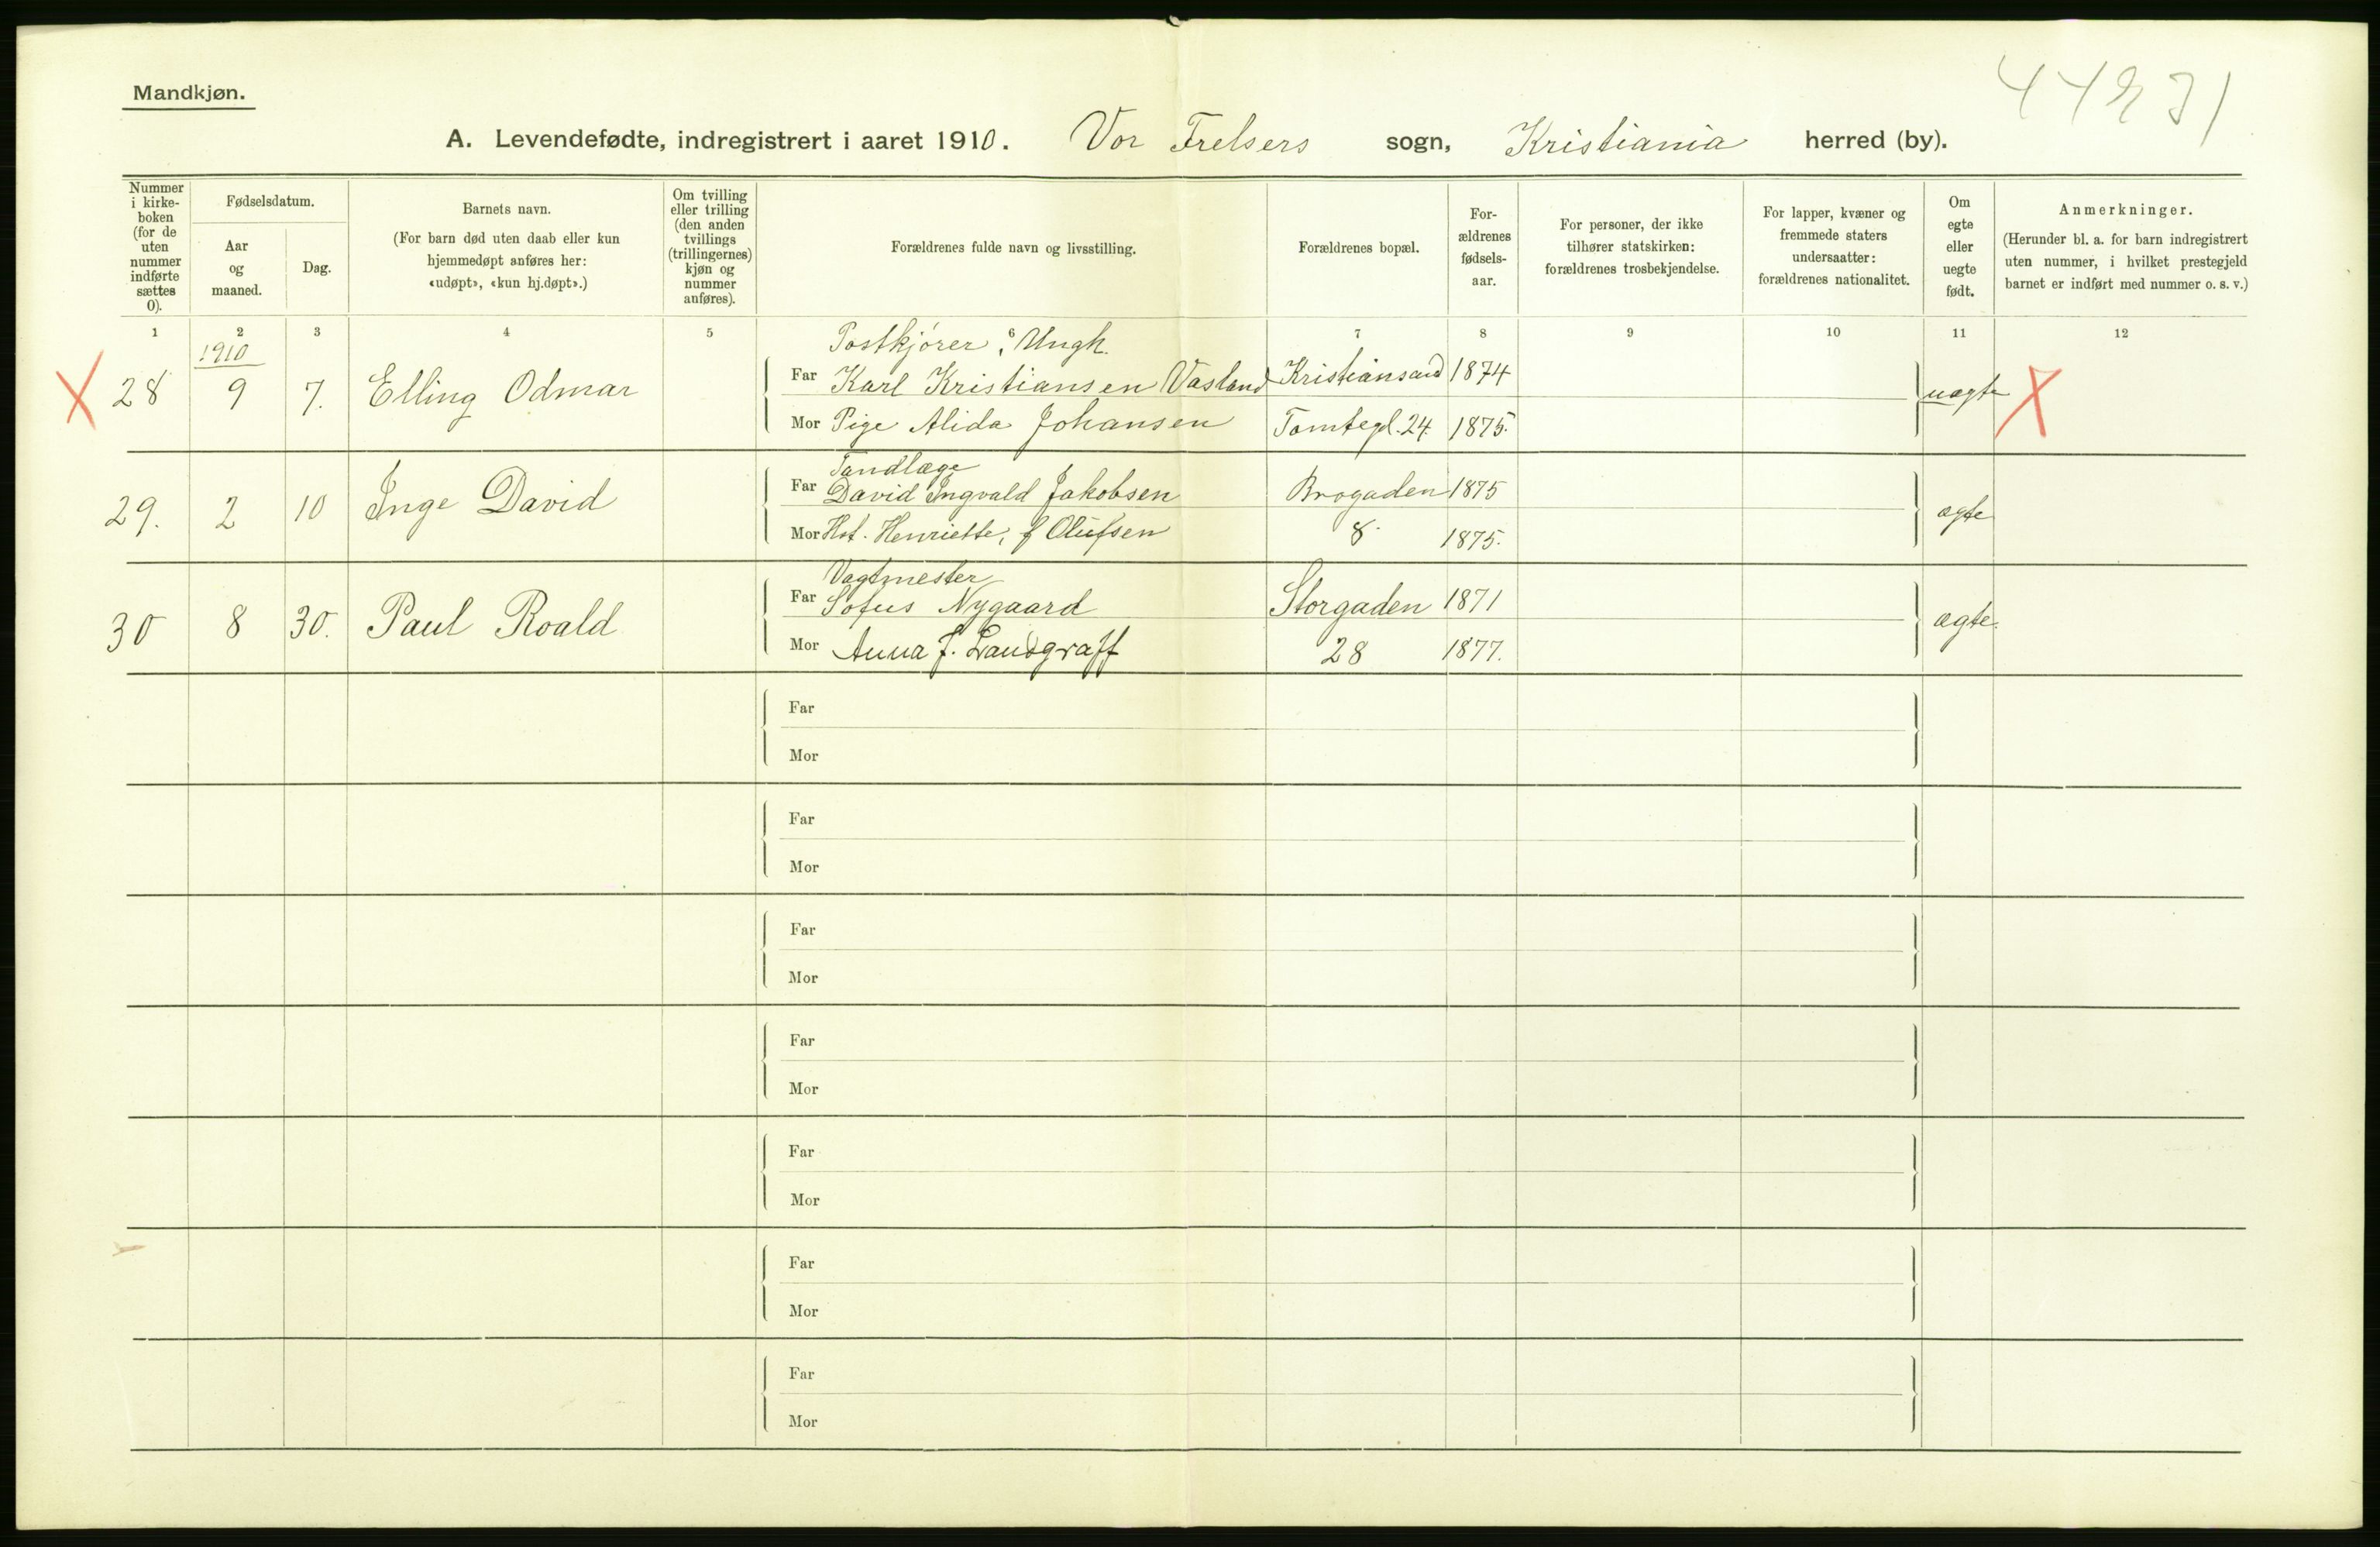 Mandkjøn.
A. Levendefødte, indregistrert i aaret 1910. Vor Frelsers sogn, Kristiania herred (by).
Nummer i kirke-boken (for de uten nummer indførte sættes 0).
Fødselsdatum.
Aar og maaned.
Dag.
Barnets navn.
(For barn død uten daab eller kun hjemmedøpt anføres her: «udøpt», «kun hj.døpt».)
Om tvilling eller trilling (den anden tvillings (trillingernes) kjøn og nummer anføres).
Forældrenes fulde navn og livsstilling.
Forældrenes bopæl.
For-ældrenes fødsels-aar.
For personer, der ikke tilhører statskirken: forældrenes trosbekjendelse.
For lapper, kvæner og fremmede staters undersaatter: forældrenes nationalitet.
Om egte eller uegte født.
Anmerkninger.
(Herunder bl. a. for barn indregistrert uten nummer, i hvilket prestegjeld barnet er indført med nummer o. s. v.)
1 2 3 4 5 6 7 8 9 10 11 12
1910
Postkjörer, Ungk.
X 28 9 7. Elling Odmar Far Karl Kristiansen Vasland Kristiansand 1874 uægte X
Mor Pige Alida Johansen Tomtegd. 24. 1875.
Tandlæge
29. 2 10 Inge David Far David Ingvald Jakobsen Brogaden 1875 ægte
Mor Hst. Henriette, f Olufsen 8. 1875.
Vagtmester
30 8 30. Paul Roald Far Sofus Nygaard Storgaden 1871 ægte.
Mor Anna f. Landgraff 28 1877.
Far
Mor
Far
Mor
Far
Mor
Far
Mor
Far
Mor
Far
Mor
Far
Mor